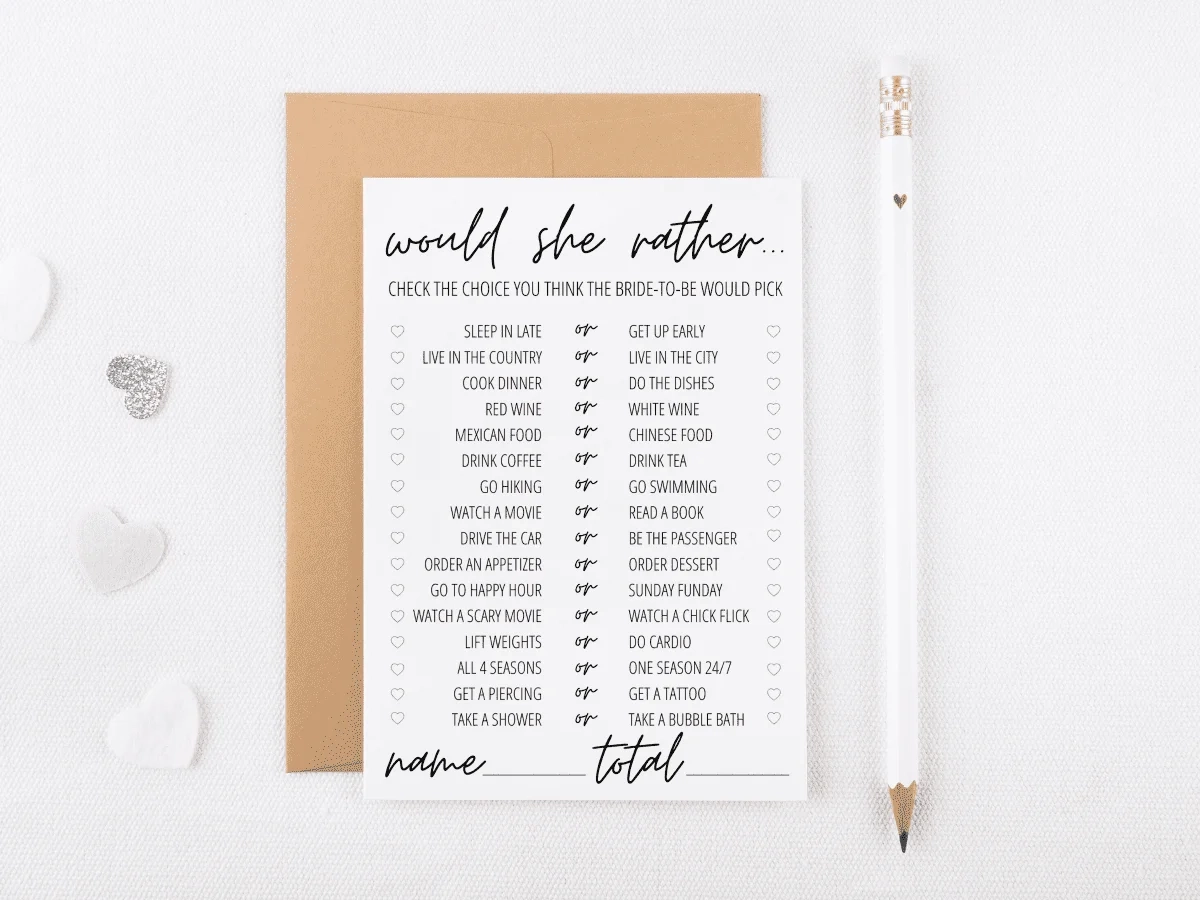 would she rather...
CHECK THE CHOICE YOU THINK THE BRIDE-TO-BE WOULD PICK
SLEEP IN LATE or GET UP EARLY
LIVE IN THE COUNTRY or LIVE IN THE CITY
COOK DINNER or DO THE DISHES
RED WINE or WHITE WINE
MEXICAN FOOD or CHINESE FOOD
DRINK COFFEE or DRINK TEA
GO HIKING or GO SWIMMING
WATCH A MOVIE or READ A BOOK
DRIVE THE CAR or BE THE PASSENGER
ORDER AN APPETIZER or ORDER DESSERT
GO TO HAPPY HOUR or SUNDAY FUNDAY
WATCH A SCARY MOVIE or WATCH A CHICK FLICK
LIFT WEIGHTS or DO CARDIO
ALL 4 SEASONS or ONE SEASON 24/7
GET A PIERCING or GET A TATTOO
TAKE A SHOWER or TAKE A BUBBLE BATH
name__________ total__________